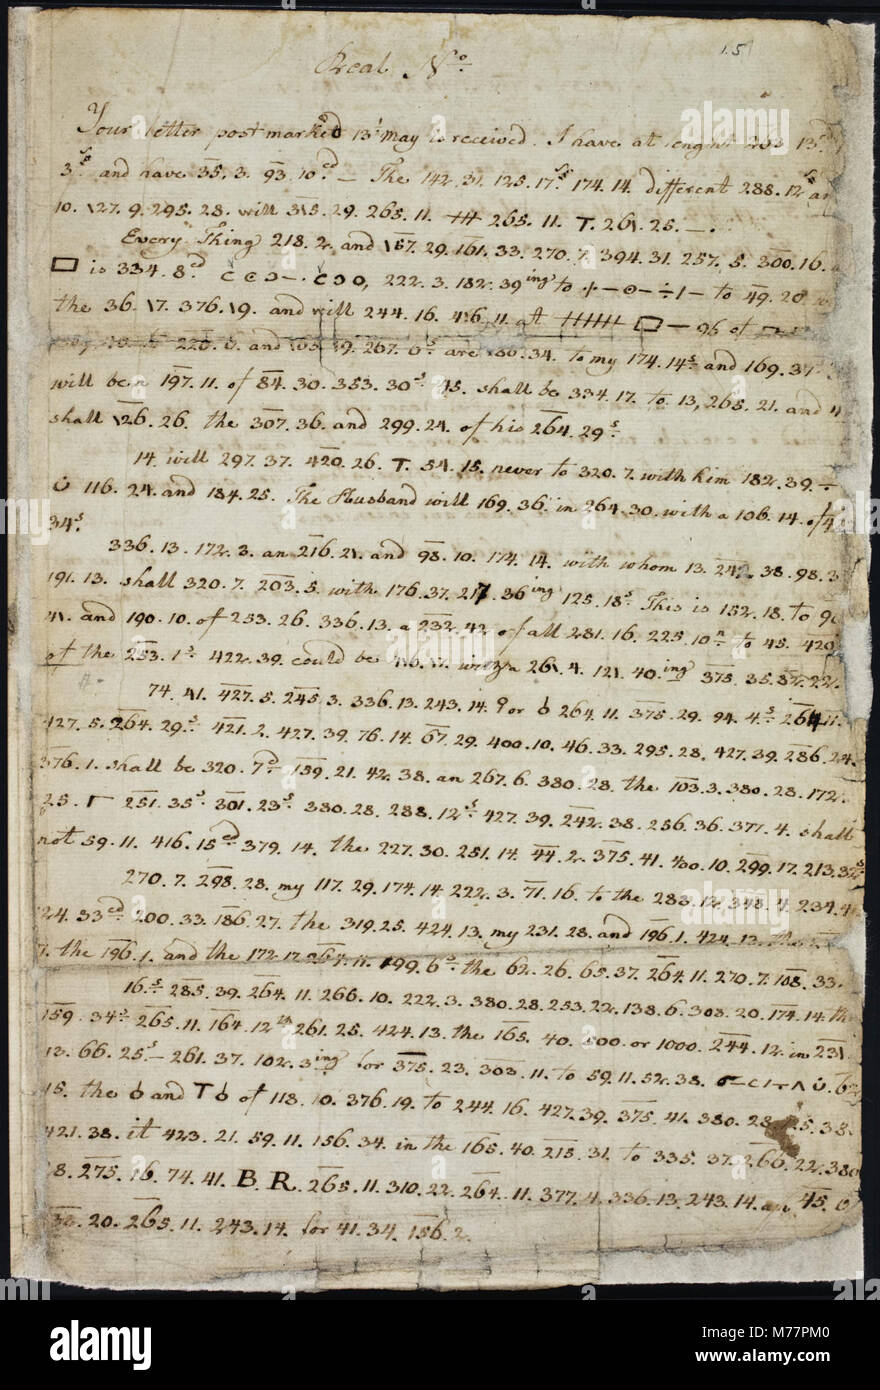 15
Real No.
Your letter post marked 13t May is received. I have at lenght 263 13
3.s and have 35. 3. 93. 10.ed — The 142. 31. 125. 17.s 174. 14. different 288. 12.s an
10. \27. 9. 295. 28. will 3\5. 29. 265. 11. 265. 11. T. 26\. 25. —.
Every Thing 218. 2. and \57. 29. 161. 33. 270. 7. 394. 31. 257. 5. 300. 16.
□ is 334. 8.d 222. 3. 182. 39ing to ÷ | — to 49. 20
the 36. \7. 376. \9. and will 244. 16. 4\6. 11. at □ — 96 of
and 9. 267. 6.s are \60. 34. to my 174. 14.s and 169. 34
will be n 197. 11. of 84. 30. 353. 30.s 45. shall be 334. 17. to 13, 265. 21. and
shall \26. 26. the 307. 36. and 299. 24. of his 264. 29.s
14. will 297. 37. 420. 26. T. 54. 15. never to 320. 7. with him 182. 39. ÷
116. 24. and 184. 25. The Husband will 169. 36. in 264. 30. with a 106. 14. of
34.s
336. 13. 172. 3. an 216. 21. and 98. 10. 174. 14. with whom 13. 242. 38. 98. 3
191. 13. shall 320. 7. 203. 5. with 176. 37. 217. 36ing 125. 18.s This is 152. 18. to
41. and 190. 10. of 253. 26. 336. 13. a 232. 42. of all 281. 16. 225. 10.n to 45. 420
of the 253. 1.s 422. 39. could be 4\6. \7. with a 26\. 4. 12\. 40.ing 375. 35. 37. 22.
74. 41. 427. 5. 245. 3. 336. 13. 243. 14. ? or 264. 11. 375. 29. 94. 4.s 264. 11.
427. 5. 264. 29.s 421. 2. 427. 39. 76. 14. 67. 29. 400. 10. 46. 33. 295. 28. 427. 39. 286. 24.
376. 1. shall be 320. 7.d 159. 21. 42. 38. an 267. 6. 380. 28. the 103. 3. 380. 28. 172.
25. 251. 35.s 301. 23.s 380. 28. 288. 12.s 427. 39. 242. 38. 256. 36. 377. 4. shall
not 59. 11. 416. 15.ed 379. 14. the 227. 30. 251. 14. 44. 2. 375. 41. 400. 10. 299. 17. 213. 32.s
270. 7. 298. 28. my 117. 29. 174. 14. 222. 3. 71. 16. to the 283. 12. 348. 4. 234. 4
24. 33.ed 200. 33. 186. 27. the 319. 25. 424. 13. my 231. 28. and 196. 1. 424. 13. the
7. the 196. 1. and the 172. 17. 264. 11. 199. 6.s the 62. 26. 65. 37. 264. 11. 270. 7. 108. 33.
16.s 285. 39. 264. 11. 266. 10. 222. 3. 380. 28. 253. 22. 138. 6. 303. 20. 174. 14. the
159. 34.s 265. 11. 164. 12.th 261. 25. 424. 13. the 165. 40. 500. or 1000. 244. 12. in 231.
12. 66. 25.s — 261. 37. 102. 3ing for 375. 23. 303. 11. to 59. 11. 52. 38.
15. the and T of 118. 10. 376. 19. to 244. 16. 427. 39. 375. 41. 380. 28. 5. 38.
421. 38. it 423. 21. 59. 11. 156. 34. in the 165. 40. 215. 31. to 335. 37. 266. 22. 380
8. 275. 16. 74. 41. B. R. 265. 11. 310. 22. 264. 11. 377. 4. 336. 13. 243. 14. 45. 0
20. 265. 11. 243. 14. for 41. 34. 156. 2.
alamy
Image ID: M77PM0
www.alamy.com